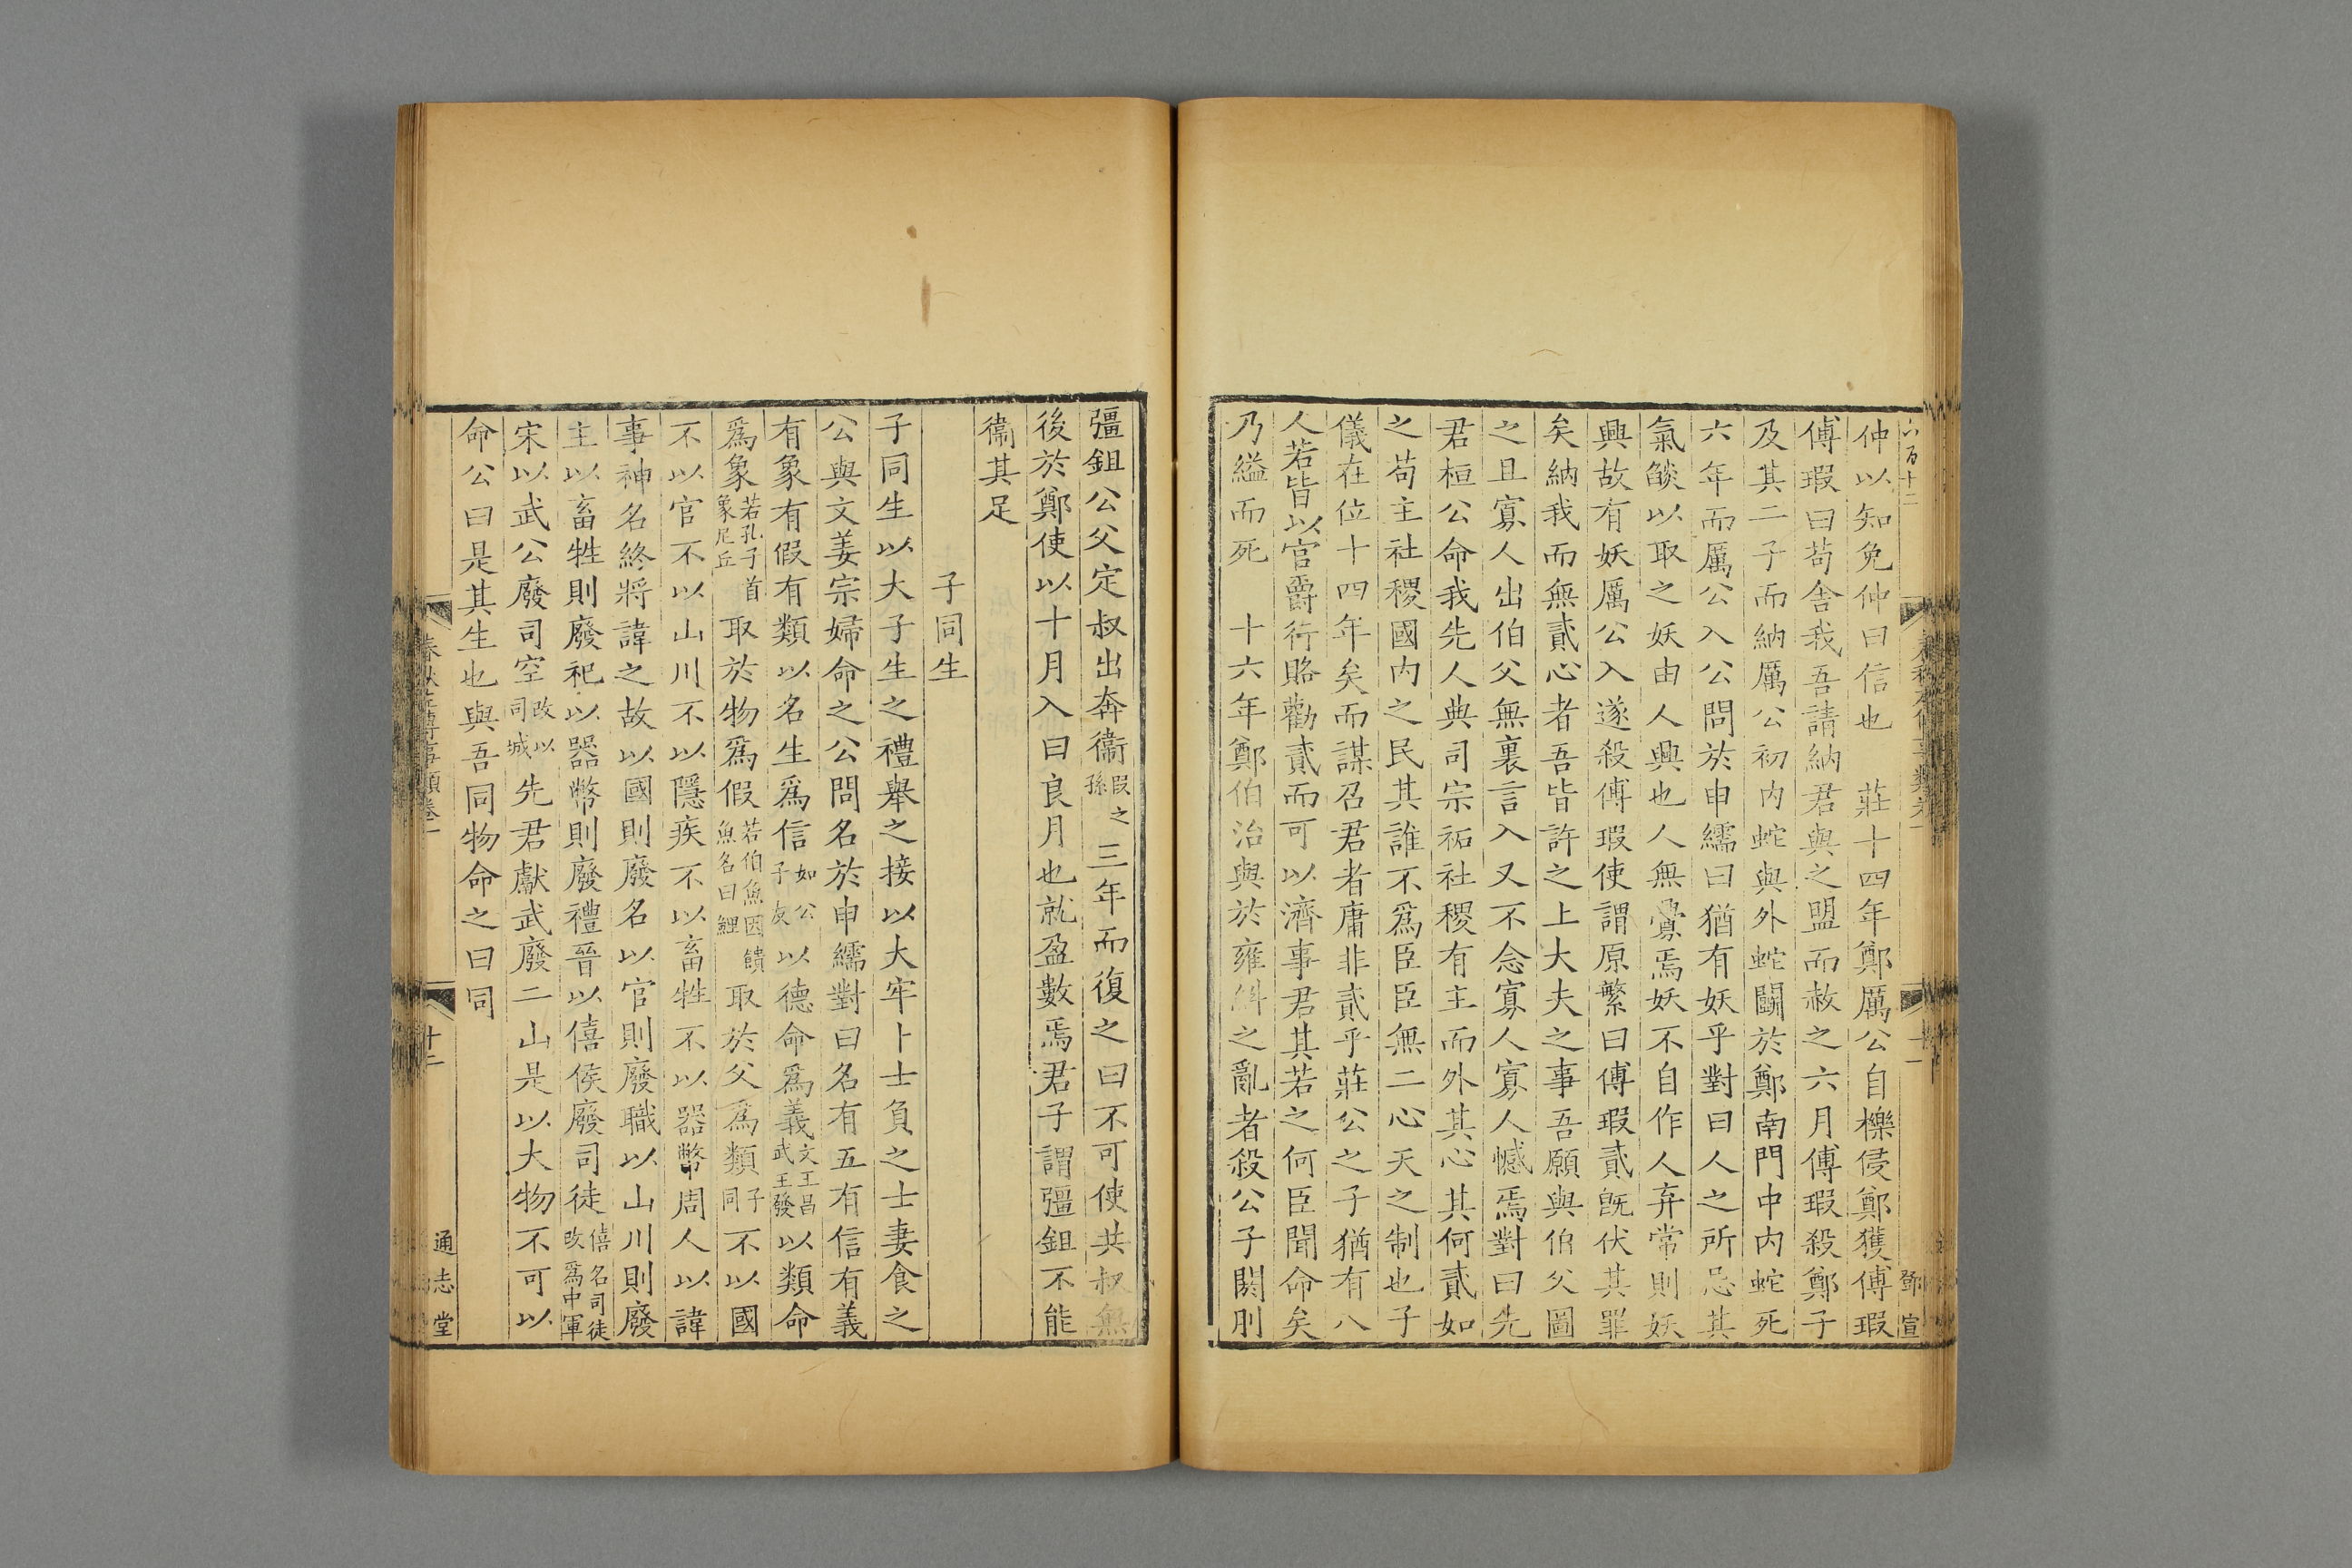 六百十二
鄧宣
仲以知免仲曰信也 莊十四年鄭厲公自櫟侵鄭獲傅瑕
傅瑕曰苟舍我吾請納君與之盟而赦之六月傅瑕殺鄭子
及其二子而納厲公初內蛇與外蛇鬭於鄭南門中內蛇死
六年而厲公入公問於申繻曰猶有妖乎對曰人之所忌其
氣燄以取之妖由人興也人無釁焉妖不自作人弃常則妖
興故有妖厲公入遂殺傅瑕使謂原繁曰傅瑕貳既伏其罪
矣納我而無貳心者吾皆許之上大夫之事吾願與伯父圖
之且寡人出伯父無裏言入又不念寡人寡人憾焉對曰先
君桓公命我先人典司宗祏社稷有主而外其心其何貳如
之苟主社稷國內之民其誰不爲臣臣無二心天之制也子
儀在位十四年矣而謀召君者庸非貳乎莊公之子猶有八
人若皆以官爵行賂勸貳而可以濟事君其若之何臣聞命矣
乃縊而死 十六年鄭伯治與於雍糾之亂者殺公子閼刖
彊鉏公父定叔出奔衞段之孫三年而復之曰不可使共叔無
後於鄭使以十月入曰良月也就盈數焉君子謂彊鉏不能
衞其足
子同生
子同生以大子生之禮舉之接以大牢卜士負之士妻食之
公與文姜宗婦命之公問名於申繻對曰名有五有信有義
有象有假有類以名生爲信如公子友以德命爲義文王昌武王發以類命
爲象若孔子首象尼丘取於物爲假若伯魚因饋魚名曰鯉取於父爲類子同不以國
不以官不以山川不以隱疾不以畜牲不以器幣周人以諱
事神名終將諱之故以國則廢名以官則廢職以山川則廢
主以畜牲則廢祀以器幣則廢禮晉以僖侯廢司徒僖名司徒改爲中軍
宋以武公廢司空改以司城先君獻武廢二山是以大物不可以
命公曰是其生也與吾同物命之曰同
春秋左傳事類卷一
十二
通志堂